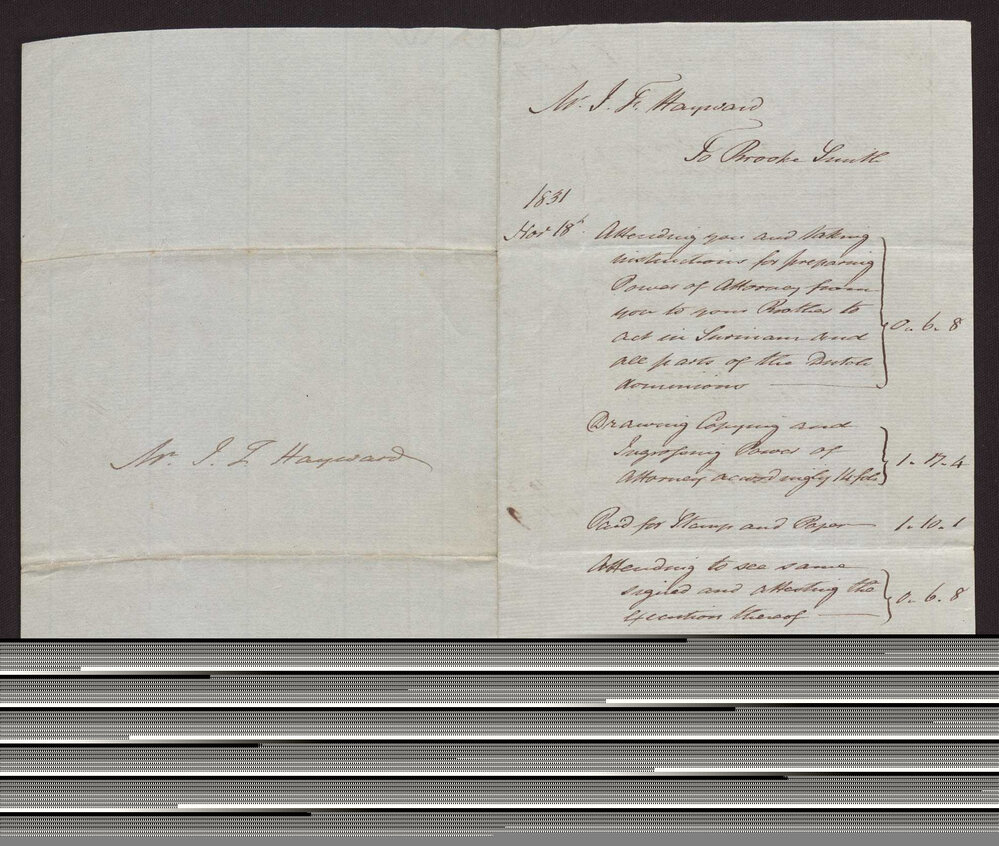 Mr. J. F. Hayward
Mr. J. F. Hayward
To Brooke Smith
1831
Nov 18th Attending you and taking
instructions for preparing
Power of Attorney from
you to your Brother to
act in Surinam and
all parts of the Dutch
dominions 0. 6. 8
Drawing Copying and
Ingrossing Power of
Attorney accordingly 14 fols 1. 17. 4
Paid for Stamp and Paper 1. 10. 1
Attending to see same
signed and attesting the
execution thereof 0. 6. 8